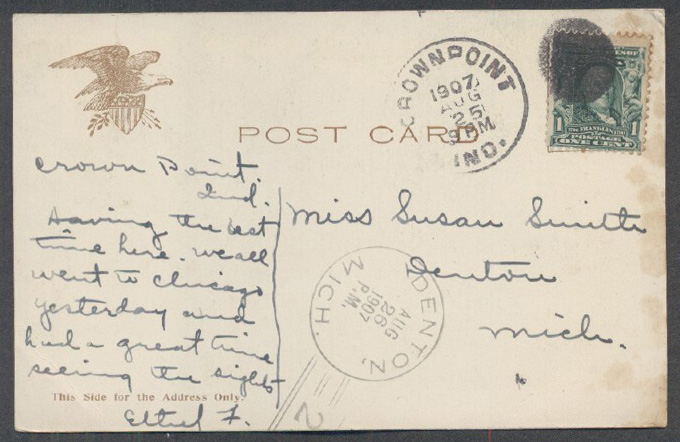 POST CARD
CROWNPOINT
1907
AUG
25
9 PM
IND.
1
1
POSTAGE
ONE CENT
Crown Point.
Ind.
Having the best
time here. we all
went to Chicago
yesterday and
had a great time
seeing the sights
This Side for the Address Only.
Ethel F.
Miss Susan Smith
Denton
Mich.
DENTON,
MICH.
AUG
26
1907
P.M.
2